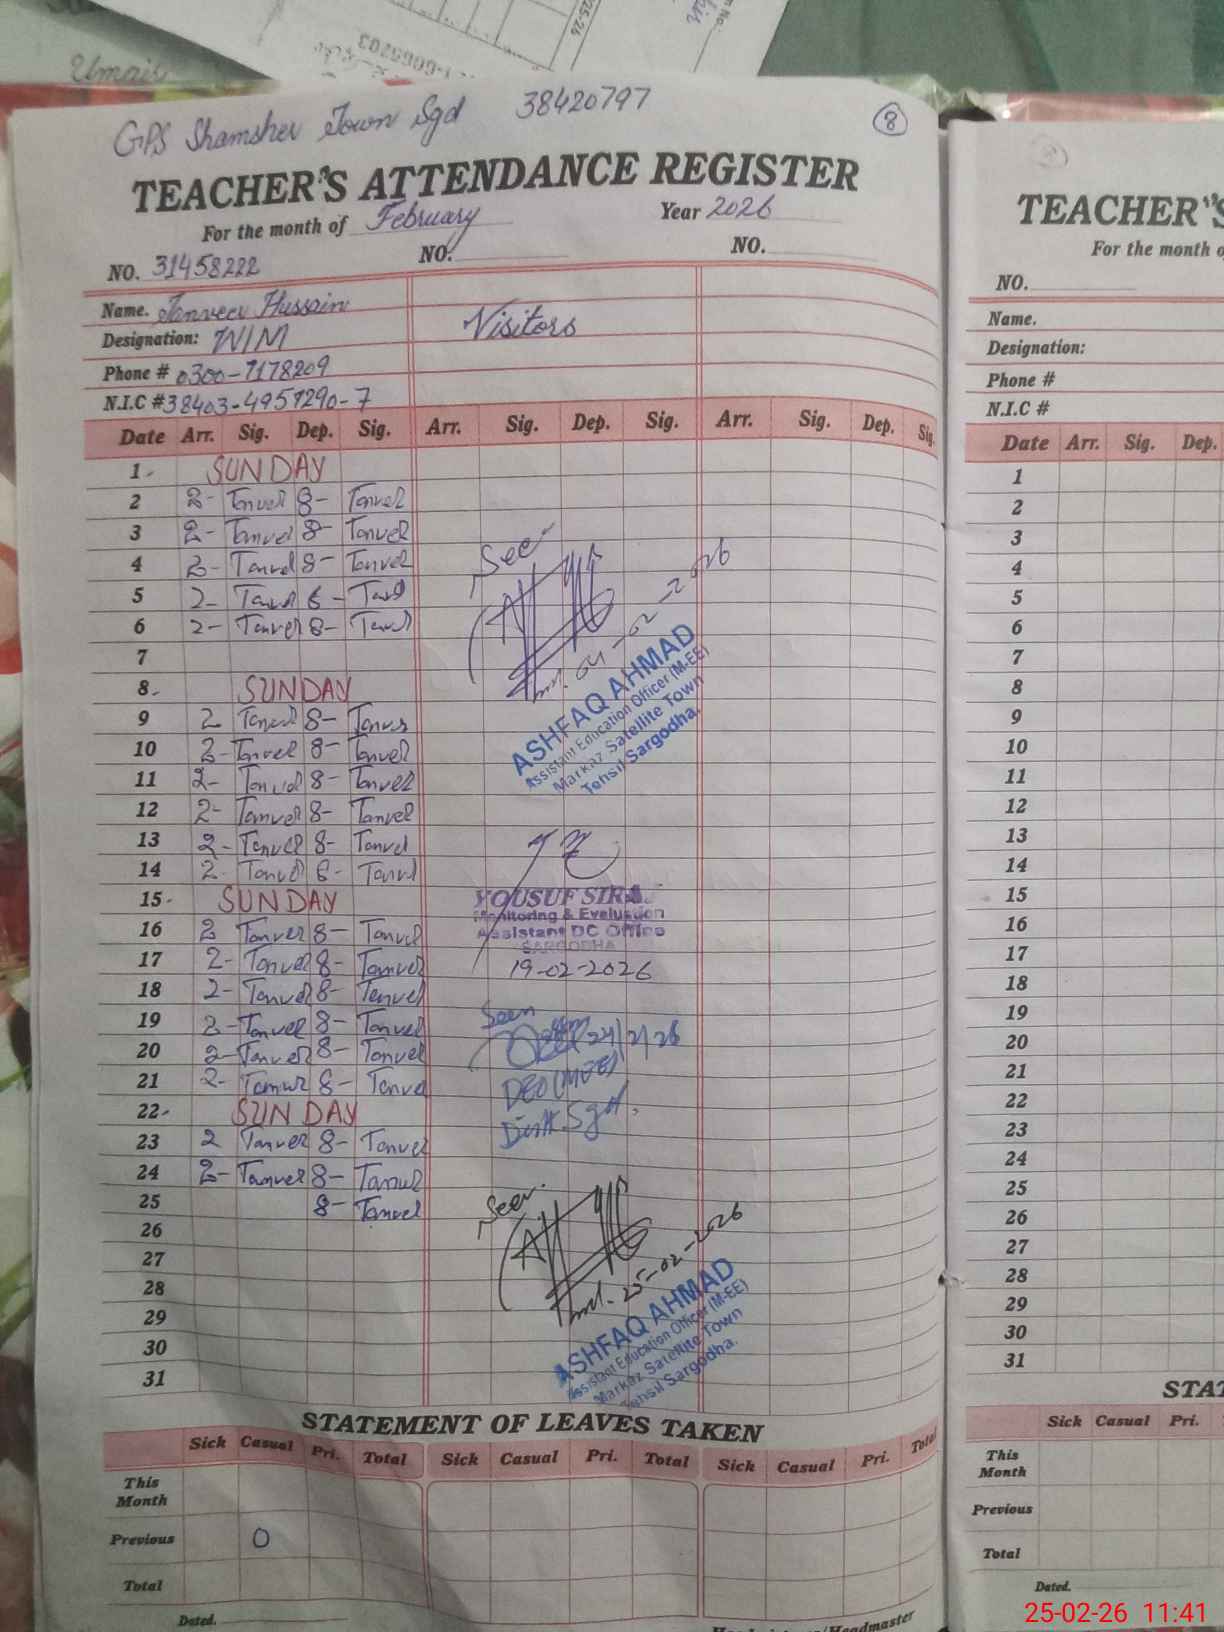 Umair
GPS Shamsher Town Sgd 38420797
8
TEACHER'S ATTENDANCE REGISTER
For the month of February Year 2026
NO. 31458222 NO. NO.
Name. Tanveer Hussain Visitors
Designation: W/M
Phone # 0300-7178209
N.I.C # 38403-4957290-7
Date Arr. Sig. Dep. Sig. Arr. Sig. Dep. Sig. Arr. Sig. Dep. Sig.
1 - SUNDAY
2 2- Tanvel 8- Tanvel
3 2- Tanvel 8- Tanvel
4 2- Tanvel 8- Tanvel
5 2- 8-
6 2- Tanvel 8- Tanvel
7
8 - SUNDAY
9 2 Tanvel 8-
10 2- Tanvel 8- Tanvel
11 2- Tanvel 8- Tanvel
12 2- Tanvel 8- Tanvel
13 2- Tanvel 8- Tanvel
14 2- Tanvel 8- Tanvel
15 - SUNDAY
16 2 Tanvel 8- Tanvel
17 2- Tanvel 8- Tanvel
18 2- Tanvel 8- Tanvel
19 2- Tanvel 8- Tanvel
20 2- Tanvel 8- Tanvel
21 2- 8- Tanvel
22 - SUNDAY
23 2 Tanvel 8- Tanvel
24 2- Tanvel 8- Tanvel
25 8- Tanvel
26
27
28
29
30
31
Seen
04-02-2026
ASHFAQ AHMAD
Assistant Education Officer (M-EE)
Markaz Satellite Town
Tehsil Sargodha.
YOUSUF SIRAJ
Monitoring & Evaluation
Assistant DC Office
SARGODHA
19-02-2026
Seen
24/2/26
DEO (MEE)
Distt. Sgd.
Seen.
25-02-2026
ASHFAQ AHMAD
Assistant Education Officer (M-EE)
Markaz Satellite Town
Tehsil Sargodha.
STATEMENT OF LEAVES TAKEN
Sick Casual Pri. Total Sick Casual Pri. Total Sick Casual Pri. Total
This Month
Previous 0
Total
Dated.
/Headmaster
TEACHER'S
For the month o
NO.
Name.
Designation:
Phone #
N.I.C #
Date Arr. Sig. Dep.
1
2
3
4
5
6
7
8
9
10
11
12
13
14
15
16
17
18
19
20
21
22
23
24
25
26
27
28
29
30
31
STAT
Sick Casual Pri.
This Month
Previous
Total
Dated.
25-02-26 11:41